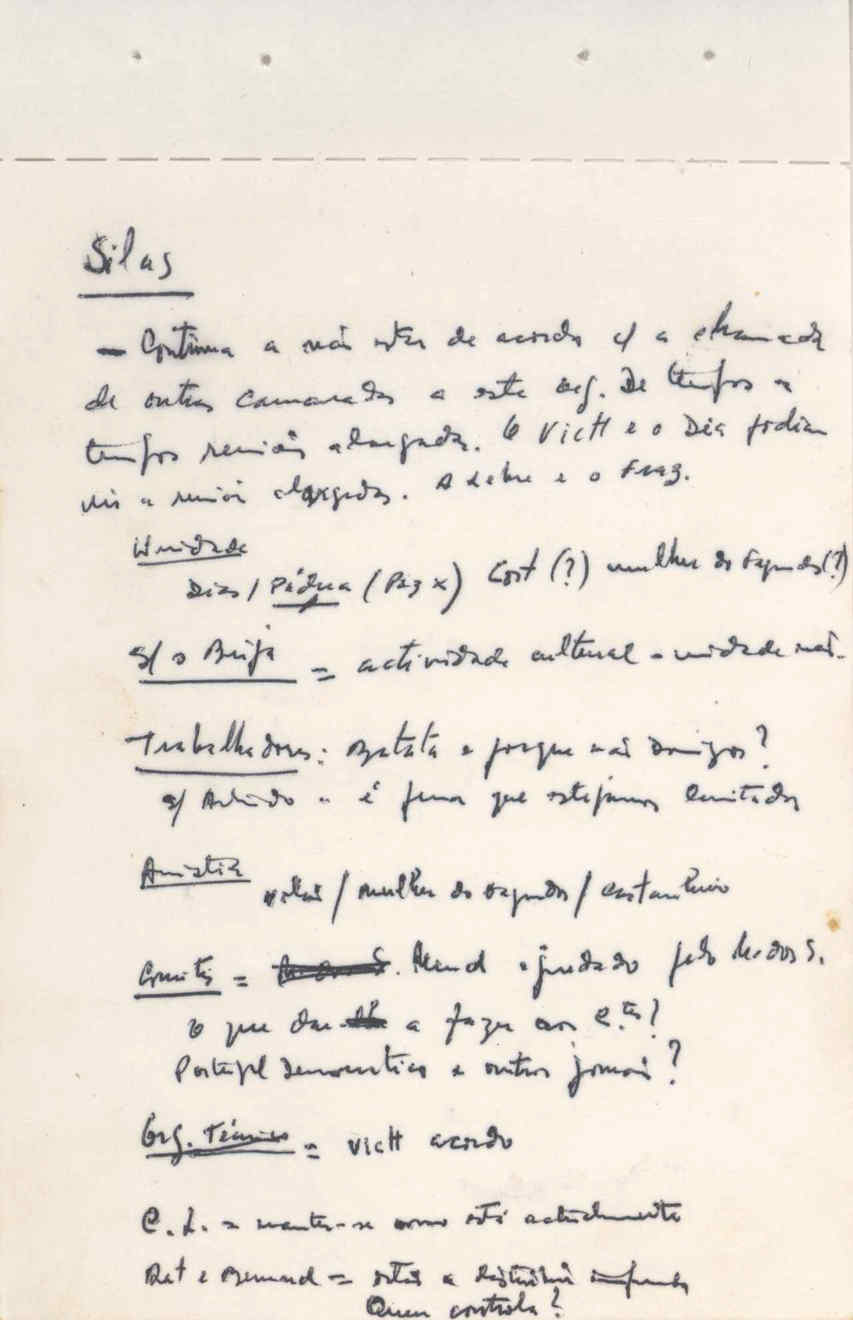 Silas
— Continua a não estar de acordo c/ a chamada
de outros camaradas a este org. De tempos a
tempos reunião alargada. O VictH e o Dia podiam
vir a reunião alargada. A Lebre e o Fraz.
Unidade
Dias / Pádua (Paz x) Cost (?) mulher do (?)
s/ o = actividade cultural - unidade não.
Trabalhadores: Batata e porque não Domingos?
s/ - é pena que estejamos limitados
Amistia / mulher do / castanheiro
Comités = . ajudado pelo
O que dar a fazer aos C.tés?
Portugal Democrático e outros jornais?
Org. Técnica = VictH acordo
C. L. = manter-se como está actualmente
Bat e Bernard = estão a distribuir
Quem controla?